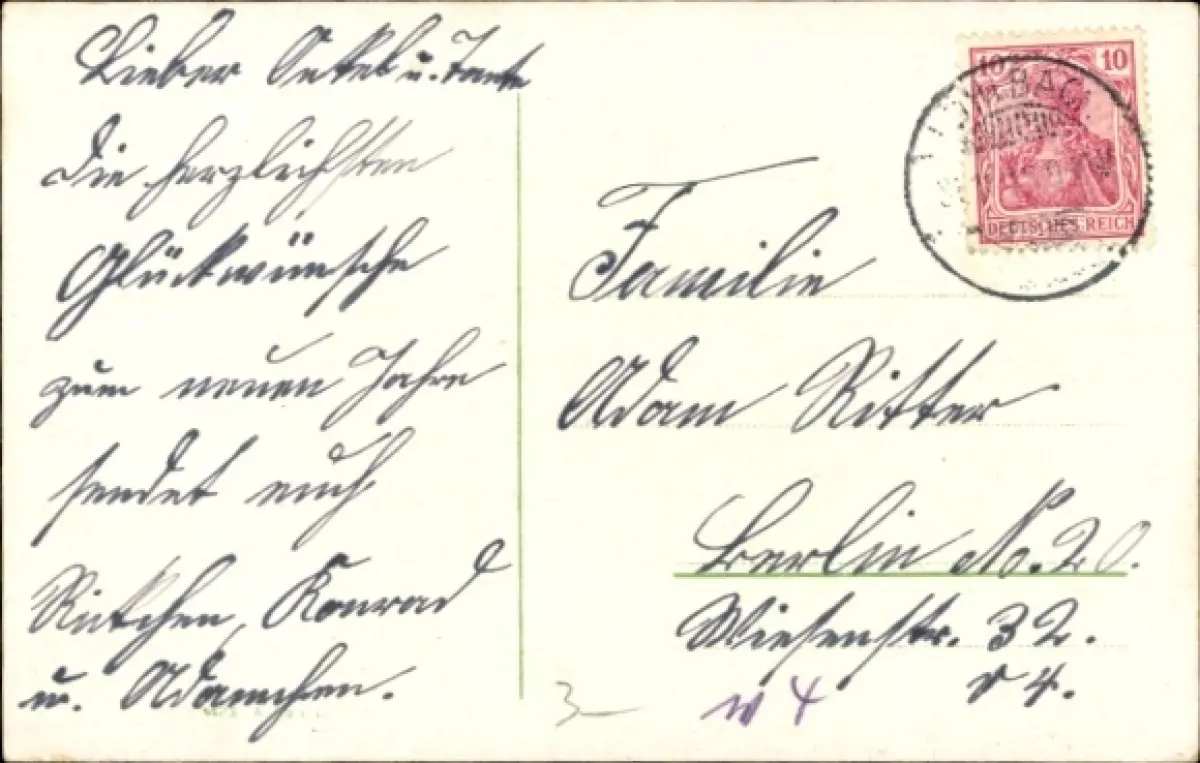 Lieber Onkel u. Tante
die herzlichsten
Glückwünsche
zum neuen Jahre
sendet euch
Konrad
u. Adamchen.
10 10
DEUTSCHES REICH
Familie
Adam Ritter
Berlin No. 20.
Wiesenstr. 32.
4.
3